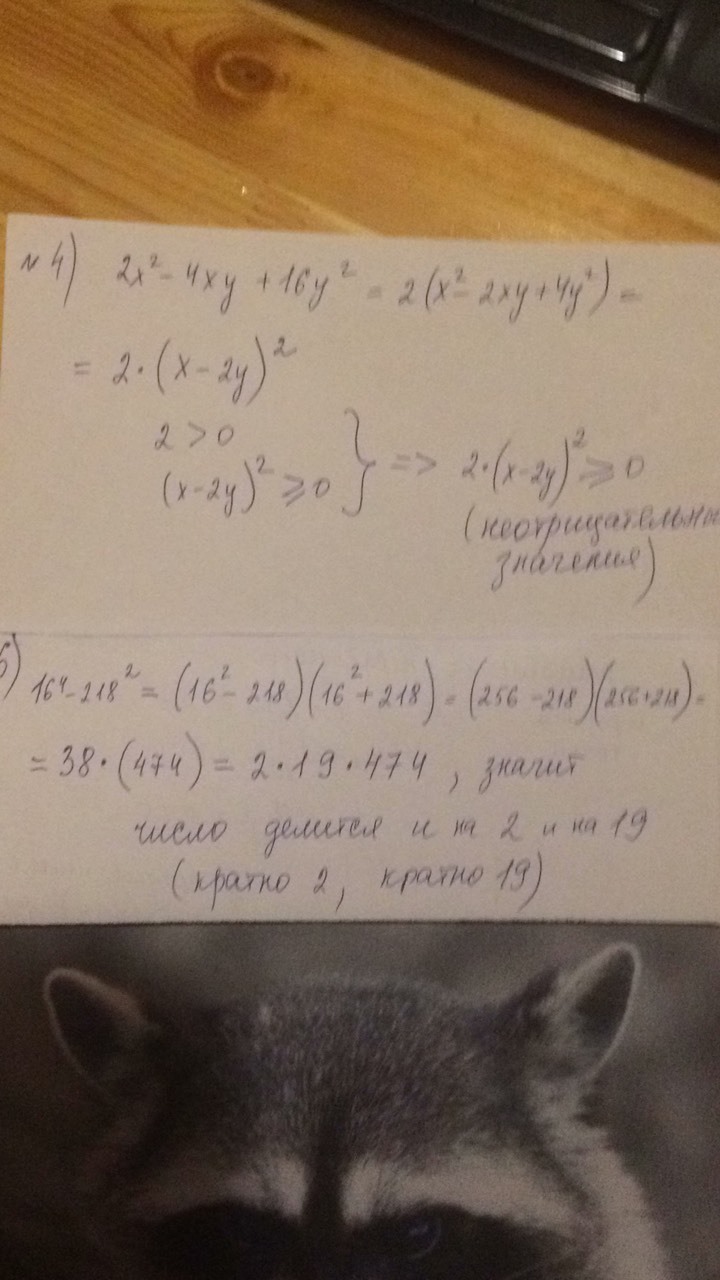 №4) 2x² - 4xy + 16y² = 2(x² - 2xy + 4y²) =
= 2·(x - 2y)²
2 > 0
(x-2y)² ⩾ 0 } => 2·(x-2y)² ⩾ 0
(неотрицательны
значения)
16⁴ - 218² = (16² - 218)(16² + 218) = (256 - 218)(256 + 218) =
= 38·(474) = 2·19·474, значит
число делится и на 2 и на 19
(кратно 2, кратно 19)